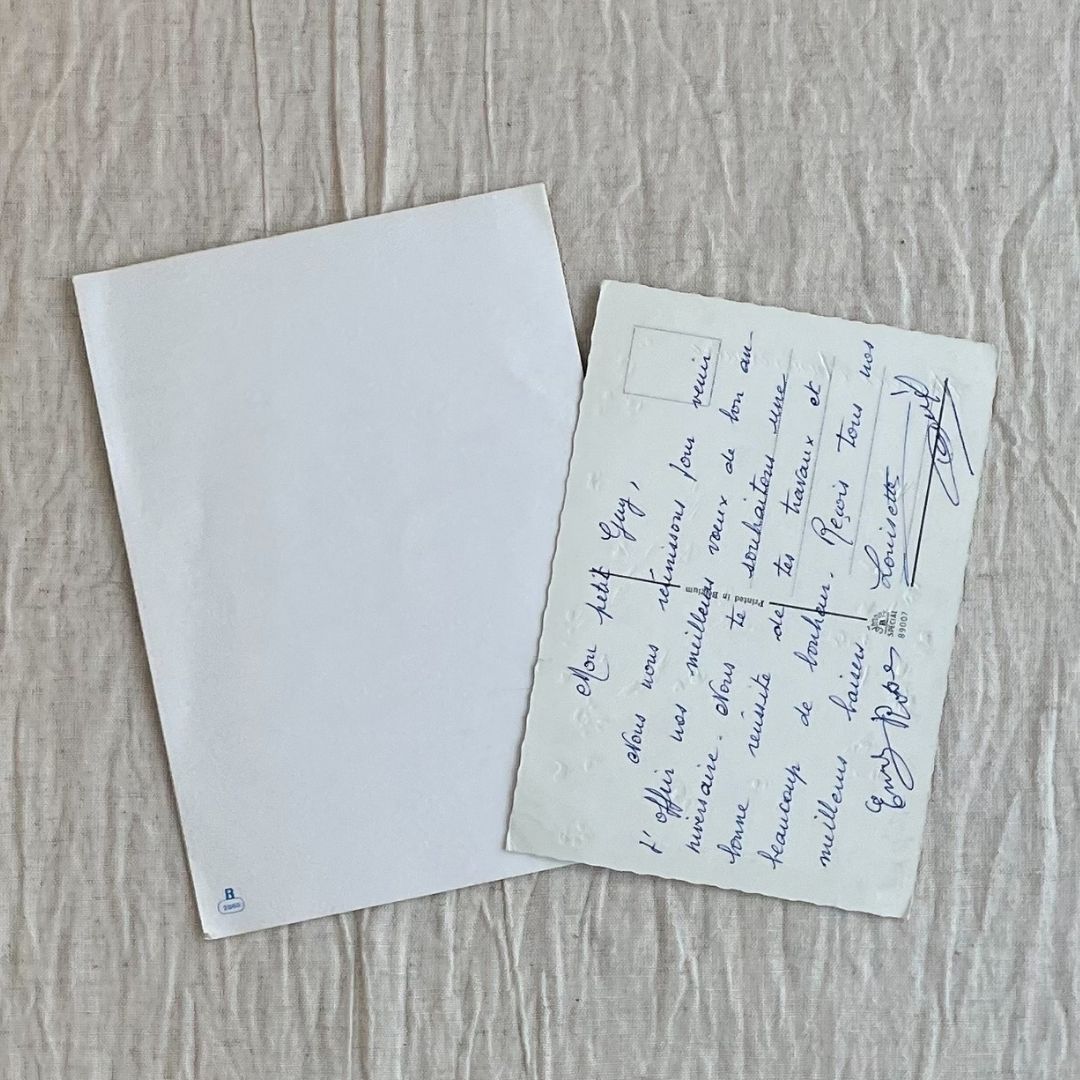 Mon petit Guy,
Nous nous réunissons pour venir
t'offrir nos meilleurs vœux de bon an-
niversaire. Nous te souhaitons une
bonne réussite de tes travaux et
beaucoup de bonheur. Reçois tous nos
meilleurs baisers
Louisette
Printed in Belgium
SPECIAL
89007
B